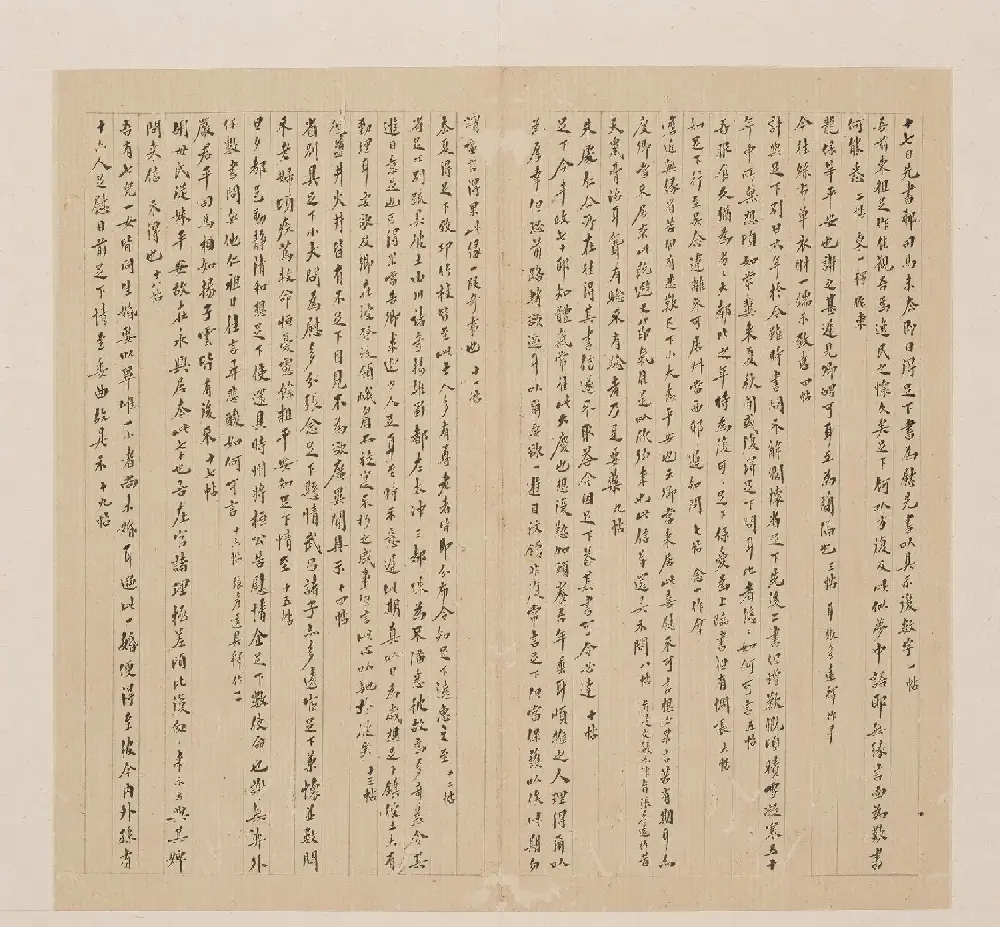 十七日先書郗司馬未去即日得足下書為慰先書以具示復數字 一帖
吾前東粗足作佳觀吾為逸民之懷久矣足下何以方復及此似夢中語耶無緣言面為歎書
何能悉 二帖
龍保等平安也謝之甚遲見卿舅可耳至為簡隔也 三帖
今往絲布單衣財一端示致意 四帖
計與足下別廿六年於今雖時書問不解闊懷省足下先後二書但增歎慨頃積雪凝寒五十
年中所無想頃如常冀來夏秋間或復得足下問耳比者悠悠如何可言 五帖
吾服食久猶為劣劣大都比之年時為復可可足下保愛為上臨書但有惆悵 六帖
知足下行至吳念違離不可居叔當西耶遲知問 七帖 念一作今
瞻近無緣省苦但有悲歎足下小大悉平安也云卿當來居此喜遲不可言想必果言苦有期耳亦
度卿當不居京此既避又節氣佳是以欣卿來也此信旨還具示問 八帖
天鼠膏治耳聾有驗不有驗者乃是要藥 九帖
朱處仁今所在往得其書信遂不取答今因足下答其書可令必達 十帖
足下今年政七十耶知體氣常佳此大慶也想復懃加頤養吾年垂耳順推之人理得爾以
為厚幸但恐前路轉欲逼耳以爾要欲一遊目汶領非復常言足下但當保護以俟此期勿
謂虛言得果此緣一段奇事也 十一帖
去夏得足下致邛竹杖皆至此士人多有尊老者皆即分布令知足下遠惠之至 十二帖
省足下別疏具彼土山川諸奇揚雄蜀都左太沖三都殊為不備悉彼故為多奇益令其
遊目意足也可得果當告卿求迎少人足耳至時示意遲此期真以日為歲想足下鎮彼土未有
動理耳要欲及卿在彼登汶領峨眉而旋實不朽之盛事但言此心以馳於彼矣 十三帖
彼鹽井火井皆有不足下目見不為欲廣異聞具示 十四帖
省別具足下小大問為慰多分張念足下懸情武昌諸子亦多遠宦足下兼懷並數問
不老婦頃疾篤救命恒憂慮餘粗平安知足下情至 十五帖
旦夕都邑動靜清和想足下使還具時州將桓公告慰情企足下數使命也謝無奕外
任數書問無他仁祖日往言尋悲酸如何可言
嚴君平司馬相如揚子雲皆有後不 十七帖
胡母氏從妹平安故在永興居去此七十也吾在官諸理極差頃比復匆匆來示云與其婢
問來信不得也 十八帖
吾有七兒一女皆同生婚娶以畢唯一小者尚未婚耳過此一婚便得至彼今內外孫有
十六人足慰目前足下情至委曲故具示 十九帖